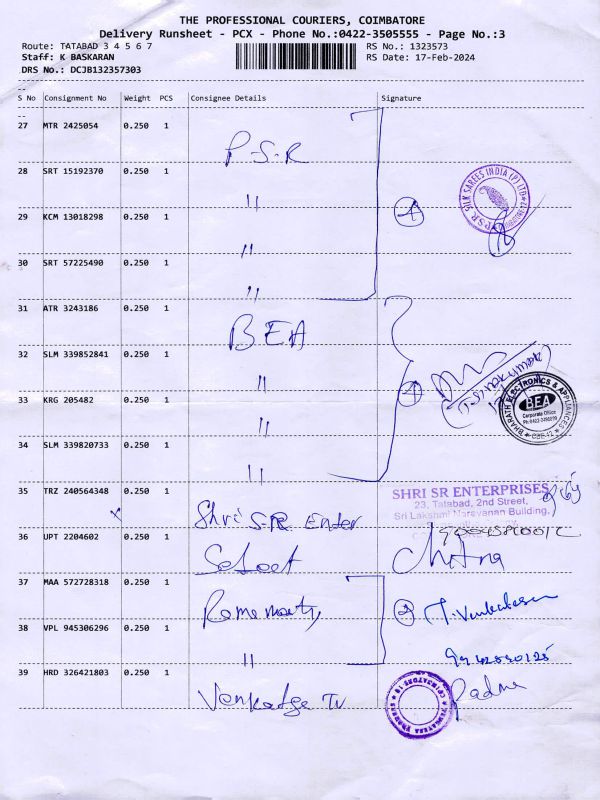 THE PROFESSIONAL COURIERS, COIMBATORE
Delivery Runsheet - PCX - Phone No.:0422-3505555 - Page No.:3
Route: TATABAD 3 4 5 6 7 RS No.: 1323573
Staff: K BASKARAN RS Date: 17-Feb-2024
DRS No.: DCJB132357303
S No Consignment No Weight PCS Consignee Details Signature
27 MTR 2425054 0.250 1 P.S.R
28 SRT 15192370 0.250 1 "
PSR SILK SAREES INDIA (P) LTD
29 KCM 13018298 0.250 1 " 4
30 SRT 57225490 0.250 1 "
31 ATR 3243186 0.250 1 BEA
32 SLM 339852841 0.250 1 "
33 KRG 205482 0.250 1 " 4
BHARATH ELECTRONICS & APPLIANCES
BEA
Corporate Office
CBE-12
34 SLM 339820733 0.250 1 "
35 TRZ 240564348 0.250 1 Shri S.R. Enter
SHRI SR ENTERPRISES
23, Tatabad, 2nd Street,
Sri Lakshmi Narayanan Building,
36 UPT 2204602 0.250 1
37 MAA 572728318 0.250 1 2 T. Venkatesan
38 VPL 945306296 0.250 1 "
39 HRD 326421803 0.250 1 Padma